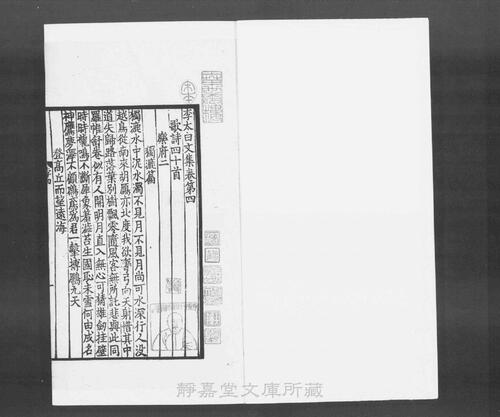 李太白文集卷第四
歌詩四十首
樂府二
獨漉篇
獨漉水中泥水濁不見月不見月尚可水深行人没
越鳥從南來胡鷹亦北度我欲彎弓向天射惜其中
道失歸路落葉別樹飄零隨風客無所託悲與此同
羅帷舒卷似有人開明月直入無心可猜雄劒挂壁
時時龍鳴不斷犀象繡澁苔生國恥未雪何由成名
神鷹夢澤不顧鴟鳶爲君一擊摶鵬九天
登高丘而望遠海
靜嘉堂文庫所藏